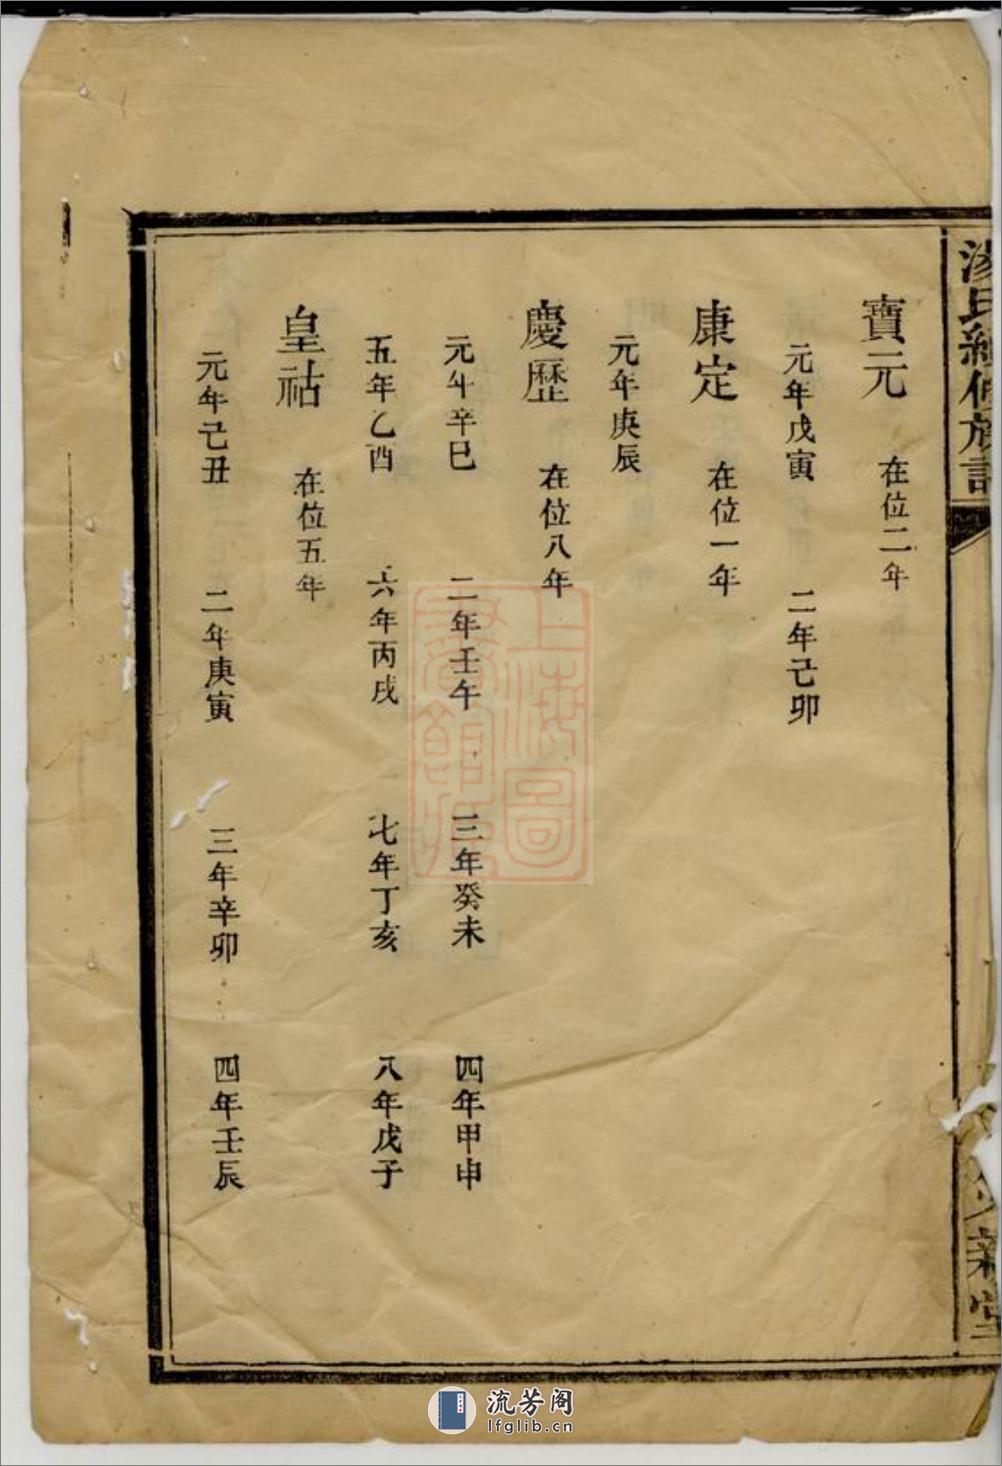 湯氏續修族譜
寶元 在位二年
元年戊寅 二年己卯
康定 在位一年
元年庚辰
慶歷 在位八年
元年辛巳 二年壬午 三年癸未 四年甲申
五年乙酉 六年丙戌 七年丁亥 八年戊子
皇祜 在位五年
元年己丑 二年庚寅 三年辛卯 四年壬辰
新堂
上海圖
書館藏
流芳阁
lfglib.cn